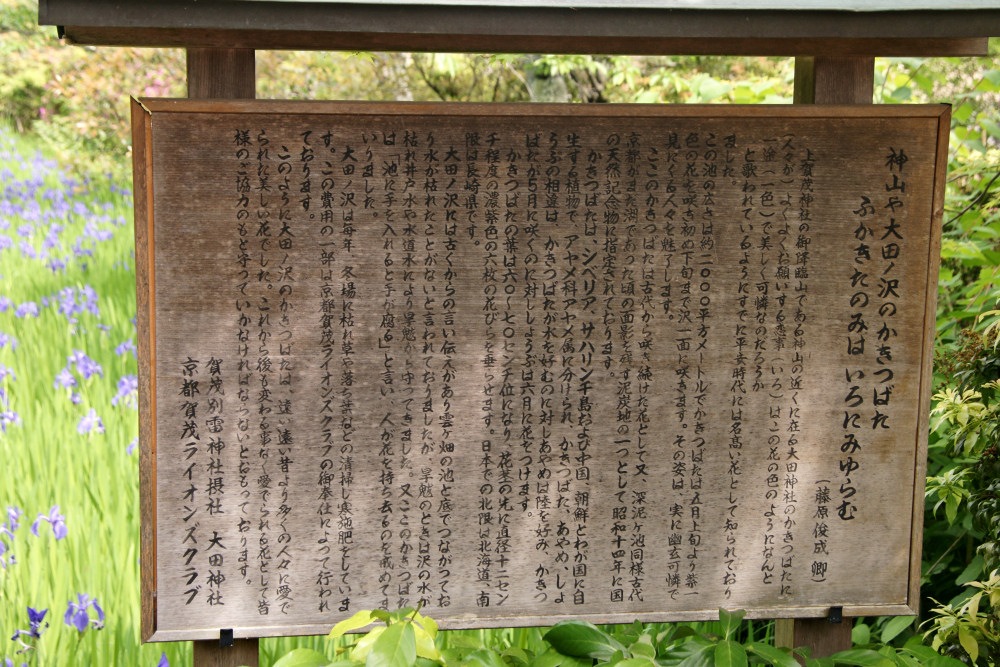 神山や大田ノ沢のかきつばた
ふかきたのみはいろにみゆらむ
（藤原俊成卿）
上賀茂神社の御降臨山である神山の近くに在る大田神社のかきつばたに
（人々が）よくよくお願いする恋事（いろ）はこの花の色のようになんと
一途（一色）で美しく可憐なのだろうか
と歌われているようにすでに平安時代には名高い花として知られており
ました。
この池の広さは約二〇〇〇平方メートルでかきつばたは五月上旬より紫一
色の花を咲き初め下旬まで沢一面に咲きます。その姿は、実に幽玄可憐で
見にくる人々を魅了します。
ここのかきつばたは古代から咲き続けた花として又、深泥ヶ池同様古代
京都がまだ湖であった頃の面影を残す泥炭地の一つとして昭和十四年に国
の天然記念物に指定されております。
かきつばたは、シベリア、サハリン千島および中国、朝鮮とわが国に自
生する植物で、アヤメ科アヤメ属に分けられ、かきつばた、あやめ、しょ
うぶの相違は、かきつばたが水を好むのに対しあやめは陸を好み、かきつ
ばたが５月に咲くのに対ししょうぶは六月に花をつけます。
かきつばたの葉は六〇～七〇センチ位になり、花茎の先に直径十二セン
チ程度の濃紫色の六枚の花びらを垂らせます。日本での北限は北海道、南
限は長崎県です。
大田ノ沢には古くからの言い伝えがあり雲ヶ畑の池と底でつながってお
り水が枯れたことがないと言われておりましたが、旱魃のときは沢の水が
枯れ井戸水や水道水により旱魃から守ってきました。又ここのかきつばた
は「池に手を入れると手が腐る」と言い、人が花を持ち去るのを戒めてま
いりました。
大田ノ沢は毎年、冬場に枯れ草や落ち葉などの清掃し寒施肥をしていま
す。この費用の一部は京都賀茂ライオンズクラブの御奉仕によって行われ
ております。
このように大田ノ沢のかきつばたは、遠い遠い昔より多くの人々に愛で
られた美しい花でした。これから後も変わる事なく愛でられる花として皆
様のご協力のもと守っていかなければならないとおもっております。
賀茂別雷神社摂社　大田神社
京都賀茂ライオンズクラブ